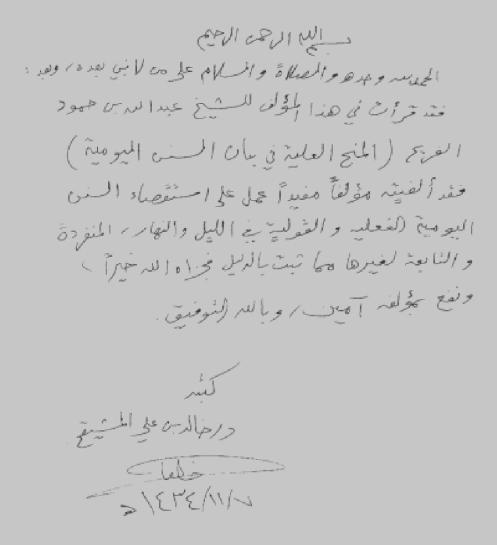 بسم الله الرحمن الرحيم
الحمد لله وحده والصلاة والسلام على من لا نبي بعده، وبعد:
فقد قرأت في هذا المؤلف للشيخ عبد الله بن حمود
الفريح (المنح العلية في بيان السنن اليومية)
فقد ألفيته مؤلفاً مفيداً عمل على استقصاء السنن
اليومية الفعلية والقولية في الليل والنهار، المنفردة
والتابعة لغيرها مما ثبت بالدليل فجزاه الله خيراً،
ونفع بمؤلفه آمين، وبالله التوفيق.
كتبه
د. خالد بن علي المشيقح
١٤٣٤/١١/٧ هـ